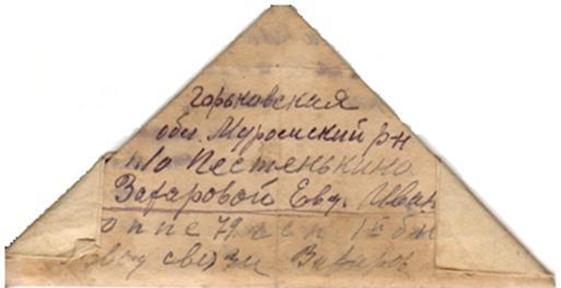 Горьковская
обл. Муромский р-н
п/о Пестенькино
Захаровой Евд. Иван
ппс 79
взвод связи Захаров